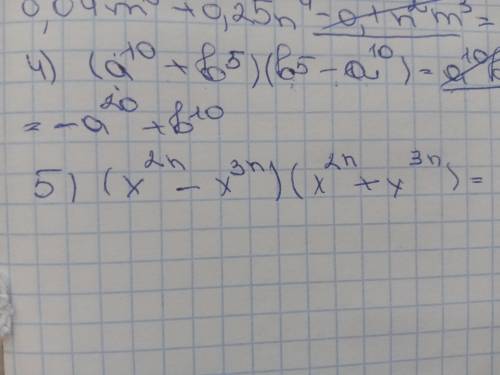 0,04m + 0,25n⁴ - 0,1n²m³ =
4) (a¹⁰ + b⁵)(b⁵ - a¹⁰) = a¹⁰b
= -a²⁰ + b¹⁰
5) (x²ⁿ - x³ⁿ)(x²ⁿ + x³ⁿ) =